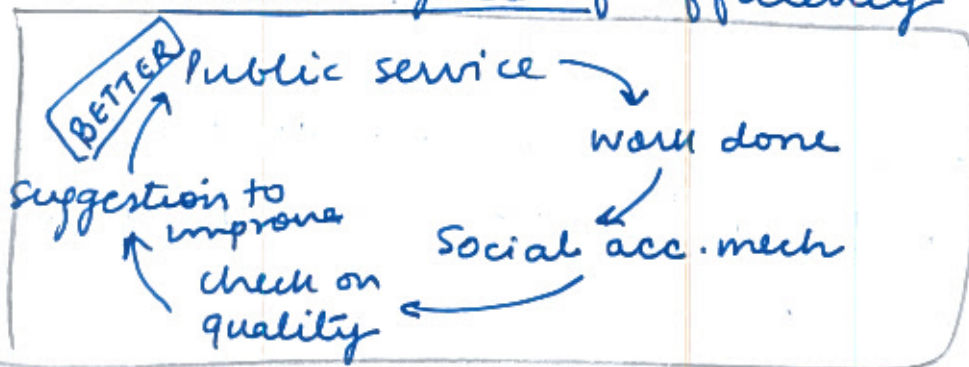 efficiency
BETTER
Public service
work done
Social acc. mech
check on
quality
suggestion to
improve